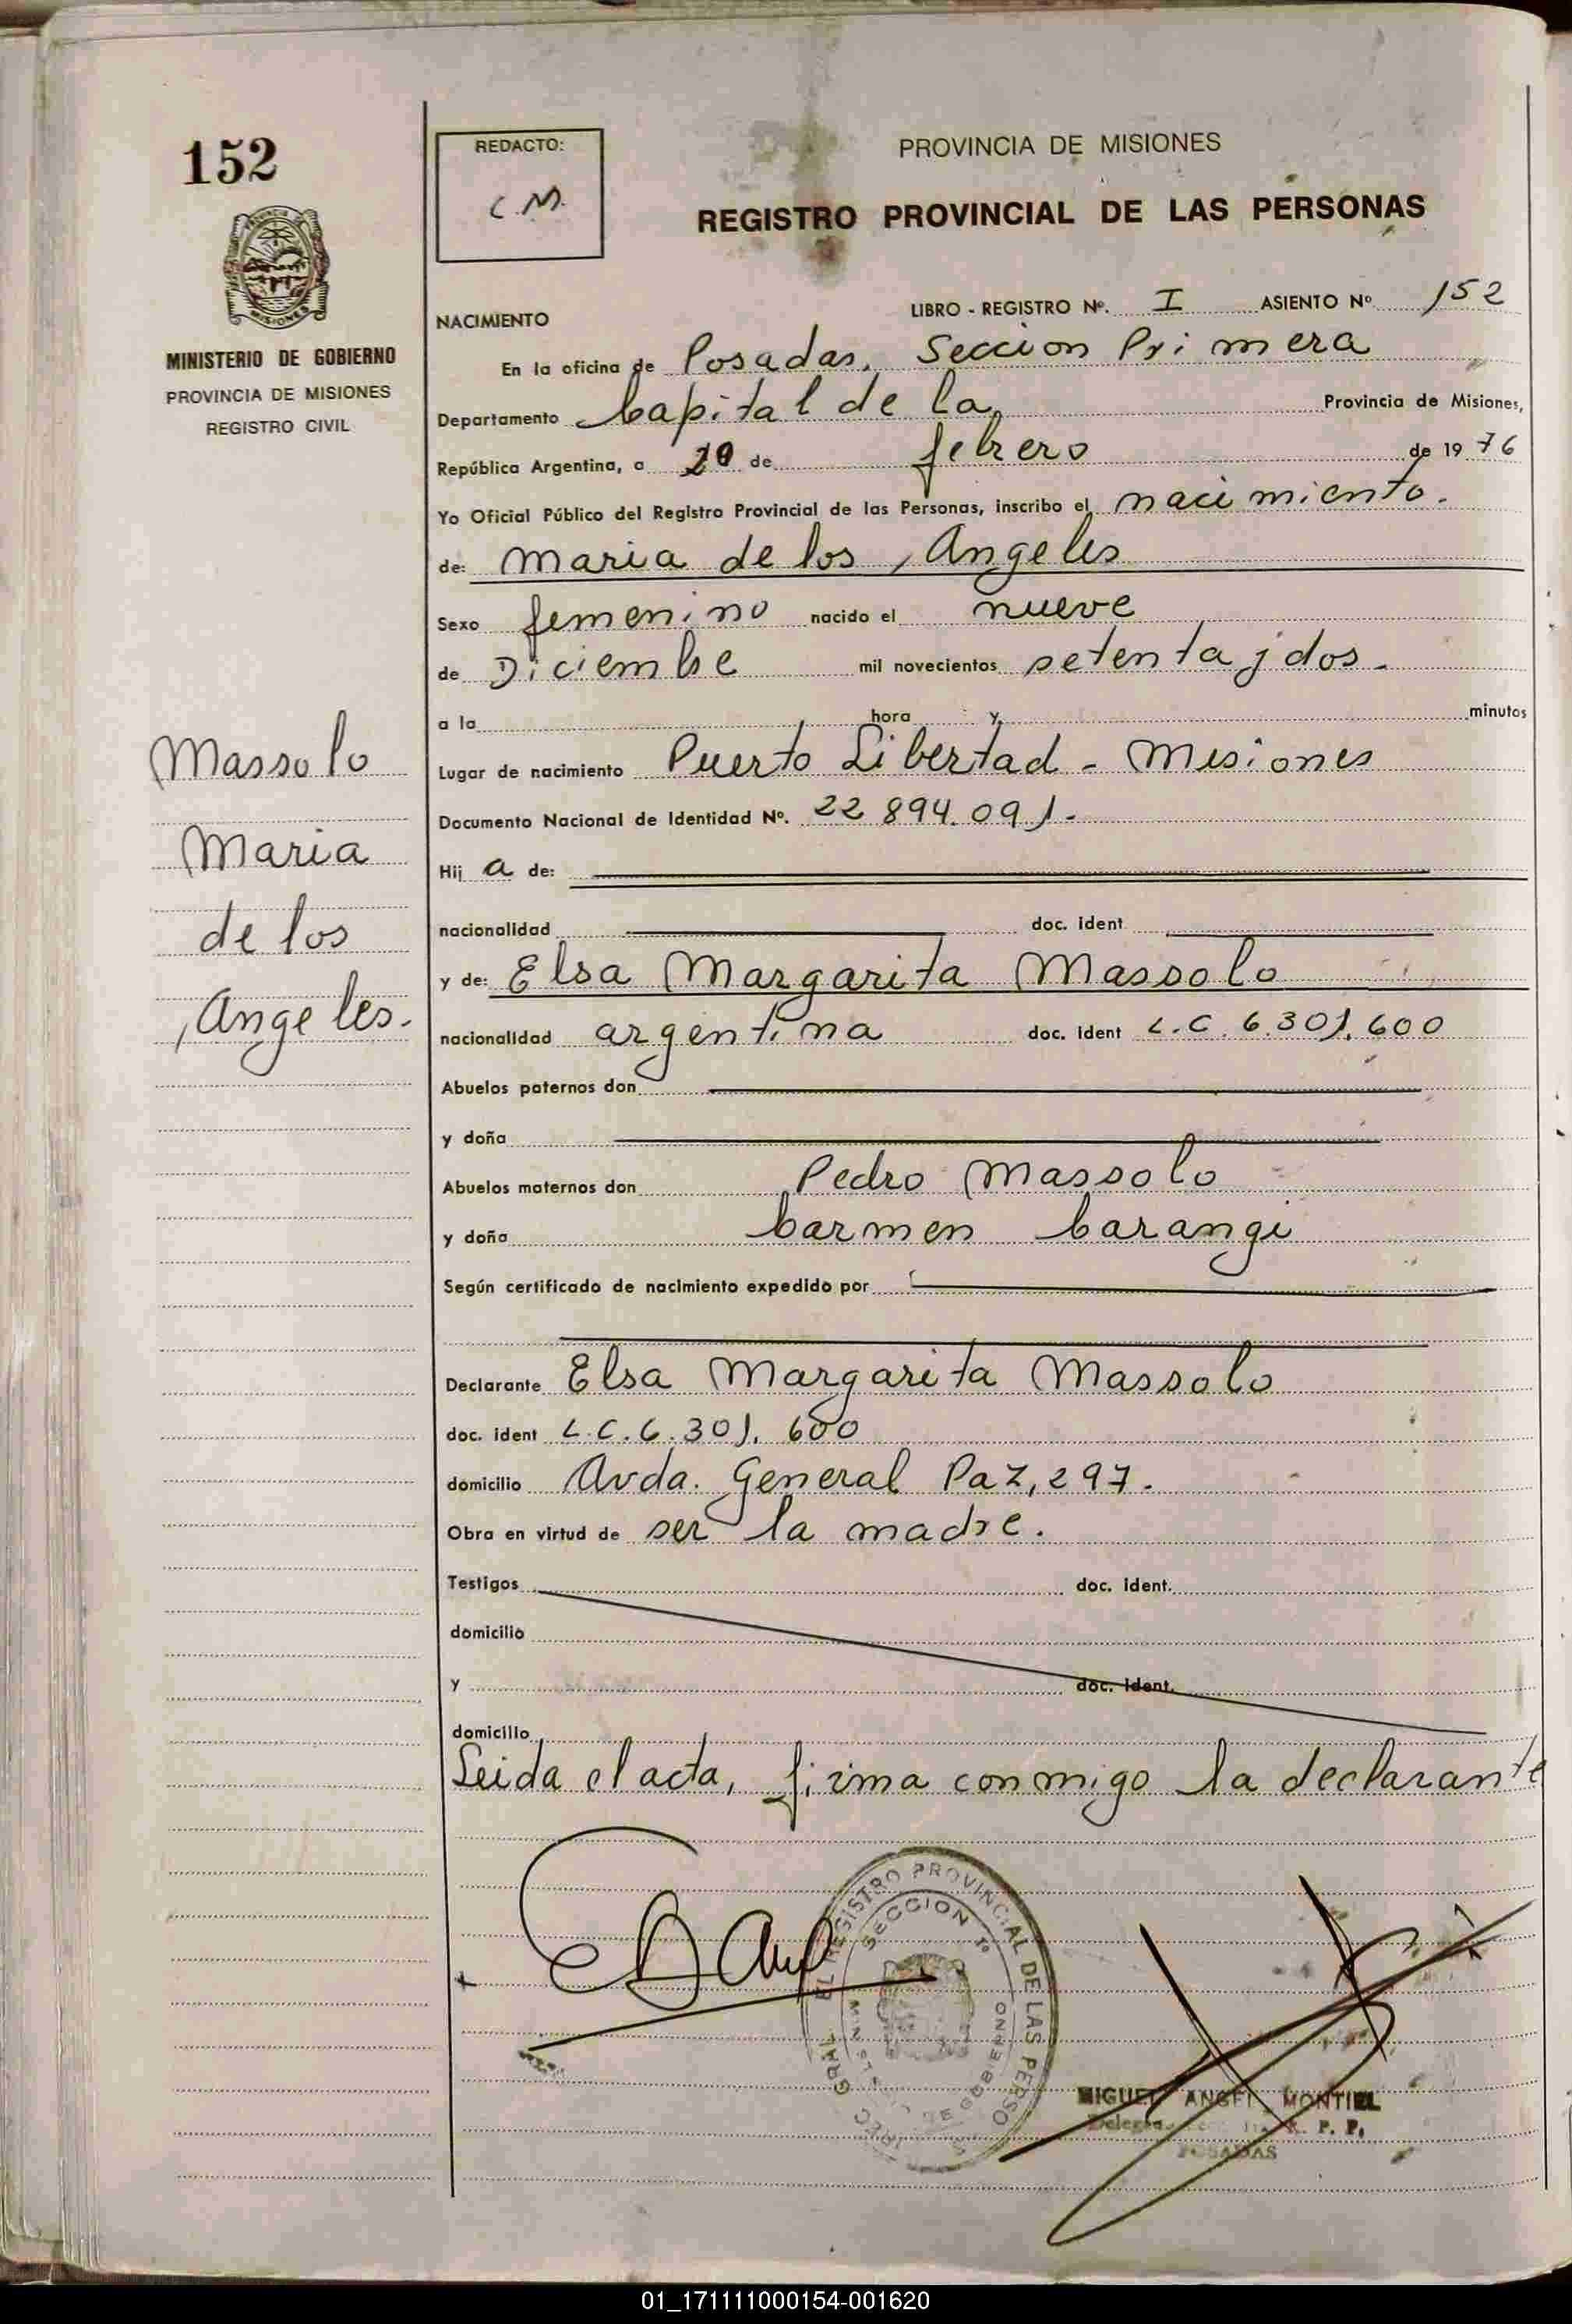 152
MINISTERIO DE GOBIERNO
PROVINCIA DE MISIONES
REGISTRO CIVIL
Massolo
Maria
de los
Angeles.
REDACTO:
C.M.
PROVINCIA DE MISIONES
REGISTRO PROVINCIAL DE LAS PERSONAS
NACIMIENTO
LIBRO - REGISTRO Nº. I ASIENTO Nº 152
En la oficina de Posadas, Seccion Primera
Departamento Capital de la Provincia de Misiones,
República Argentina, a 20 de febrero de 19 76
Yo Oficial Público del Registro Provincial de las Personas, inscribo el nacimiento.
de: Maria de los Angeles
Sexo femenino nacido el nueve
de Diciembre mil novecientos setenta y dos.
a la hora y minutos
Lugar de nacimiento Puerto Libertad - Misiones
Documento Nacional de Identidad Nº. 22 894.091.
Hij a de:
nacionalidad doc. ident
y de: Elsa Margarita Massolo
nacionalidad argentina doc. ident L.C. 6.301.600
Abuelos paternos don
y doña
Abuelos maternos don Pedro Massolo
y doña Carmen Carangi
Según certificado de nacimiento expedido por
Declarante Elsa Margarita Massolo
doc. ident L.C. 6.301.600
domicilio Avda. General Paz, 297.
Obra en virtud de ser la madre.
Testigos doc. ident.
domicilio
y doc. ident.
domicilio
Leida el acta, firma conmigo la declarante
REGISTRO PROVINCIAL DE LAS PERSO
SECCION 1ª
DE GOBIERNO
MIGUEL ANGEL MONTIEL
R. P. P.
POSADAS
01_171111000154-001620